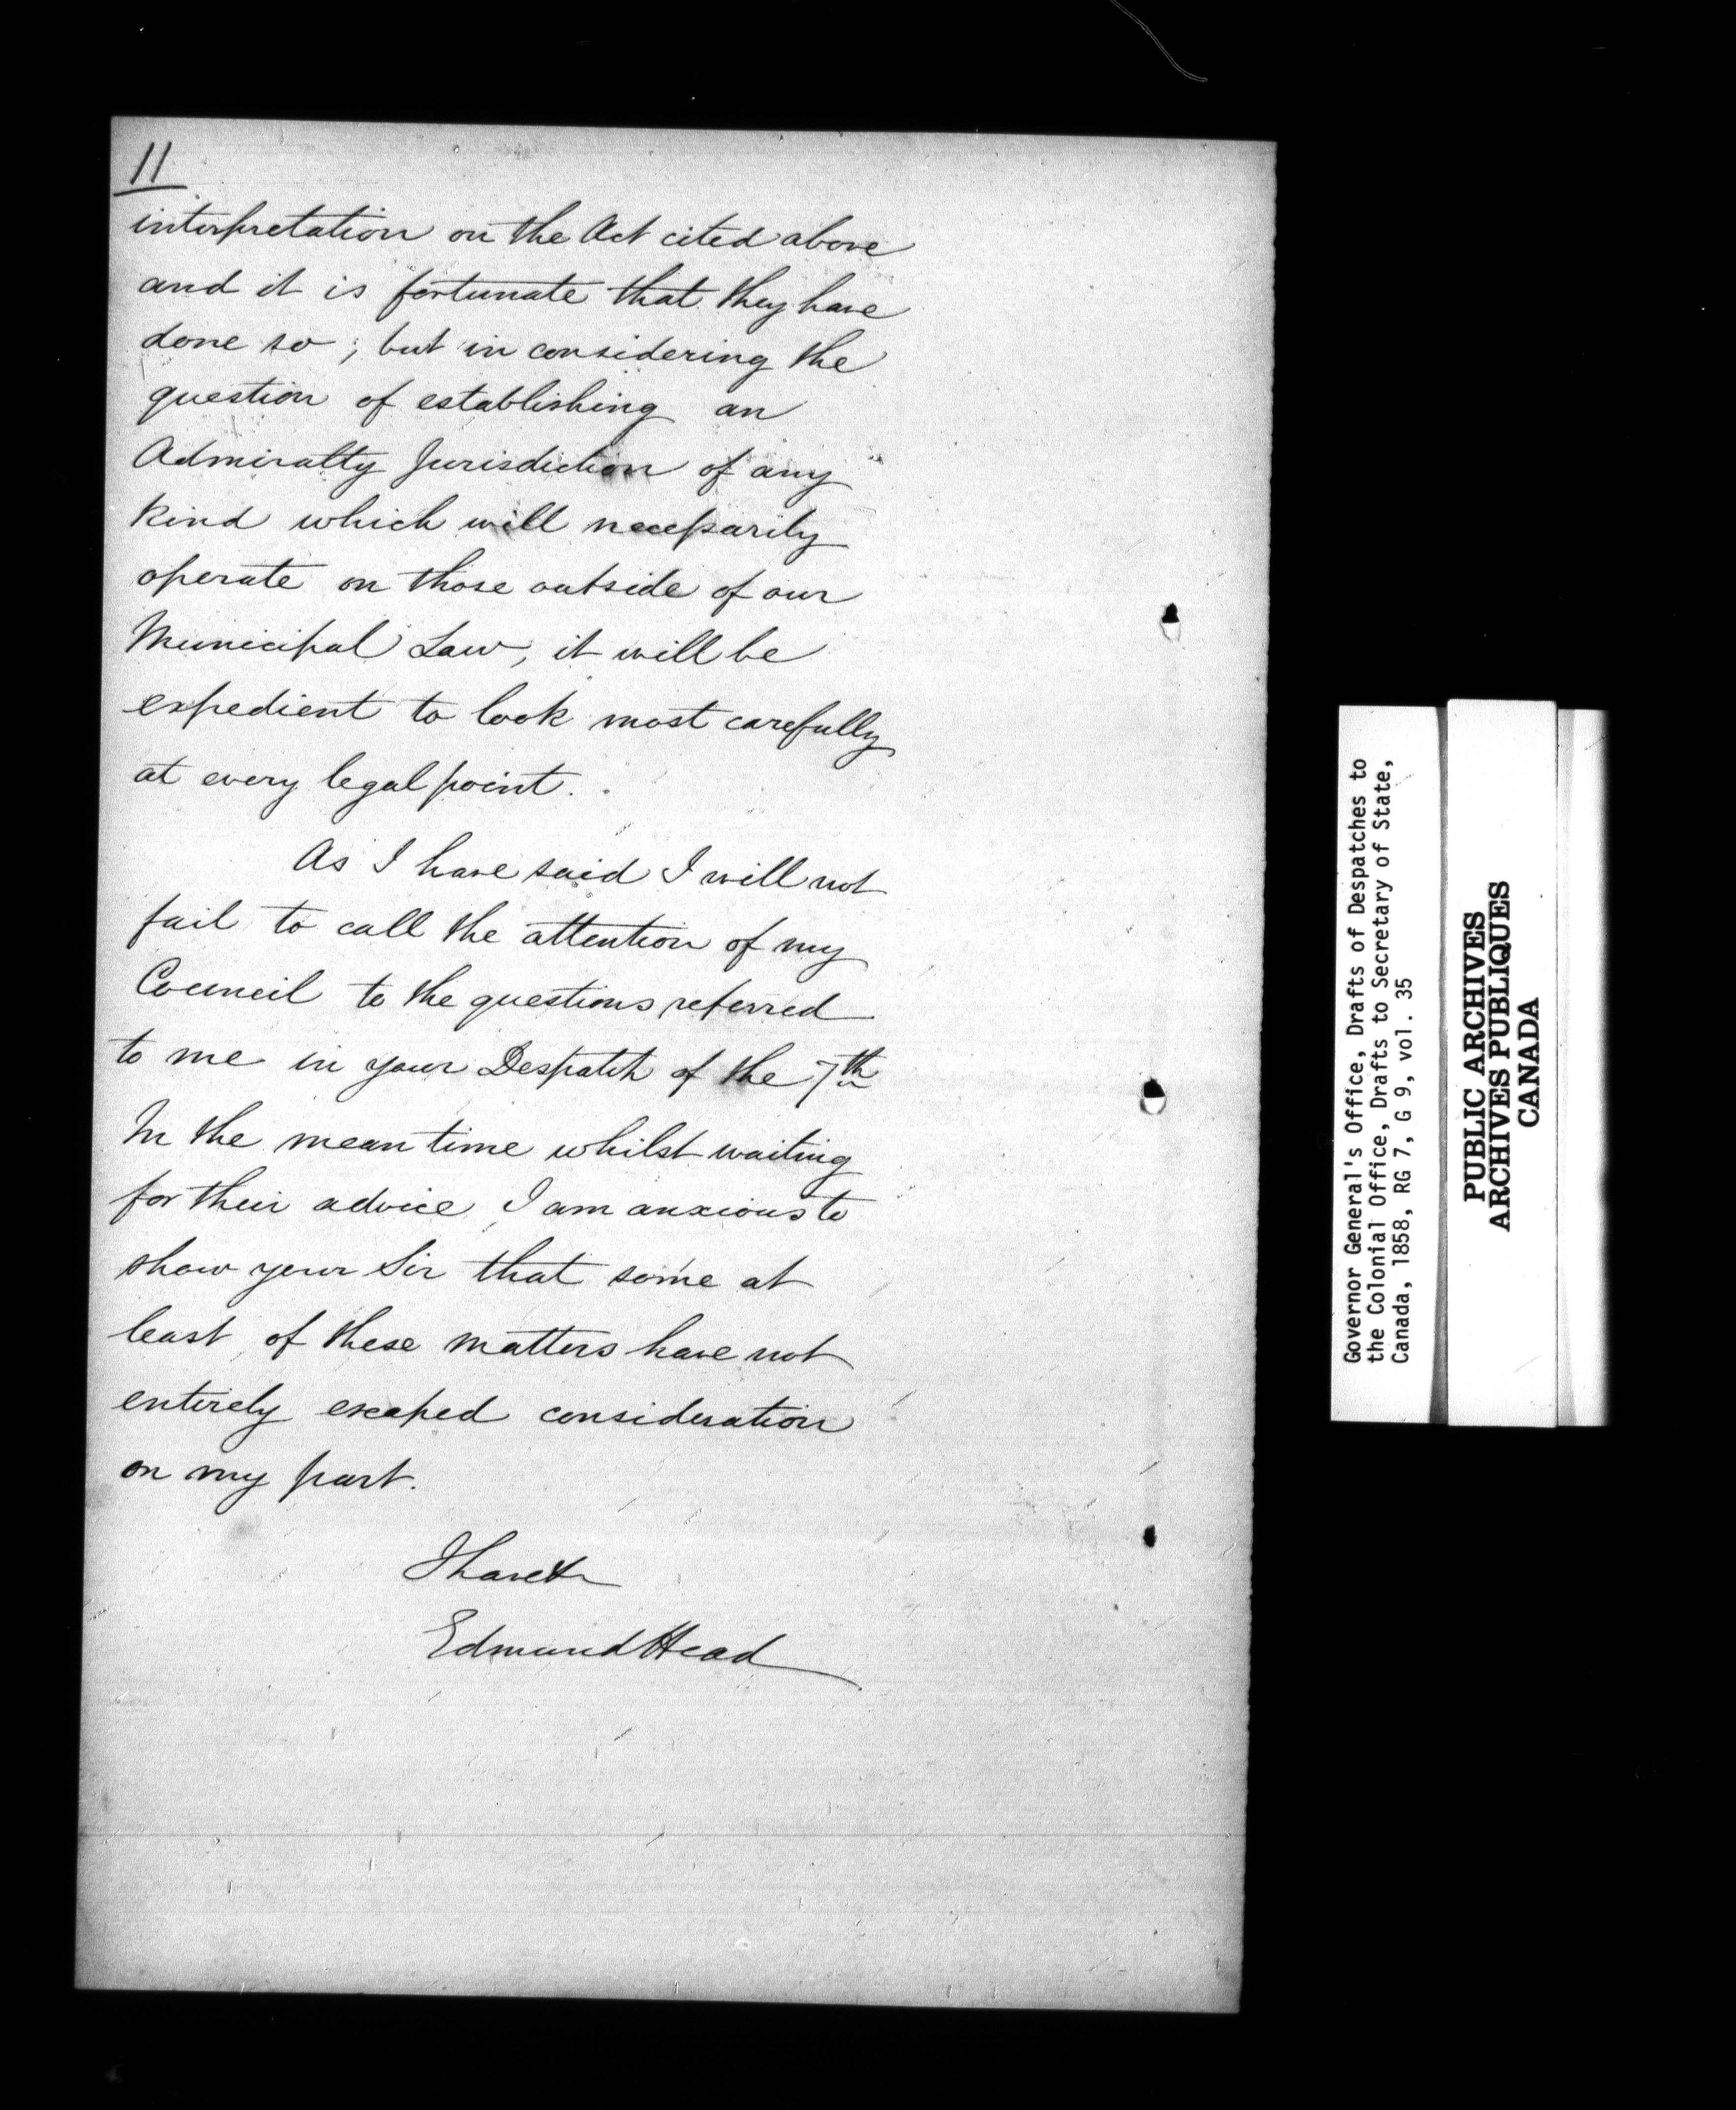 11
interpretation on the Act cited above
and it is fortunate that they have
done so; but in considering the
question of establishing an
Admiralty Jurisdiction of any
kind which will necessarily
operate on those outside of our
Municipal Law, it will be
expedient to look most carefully
at every legal point.
As I have said I will not
fail to call the attention of my
Council to the questions referred
to me in your Despatch of the 7th
In the mean time whilst waiting
for their advice I am anxious to
show your Sir that some at
least of these matters have not
entirely escaped consideration
on my part.
I have &c
Edmund Head
Governor General's Office, Drafts of Despatches to
the Colonial Office, Drafts to Secretary of State,
Canada, 1858, RG 7, G 9, vol. 35
PUBLIC ARCHIVES
ARCHIVES PUBLIQUES
CANADA